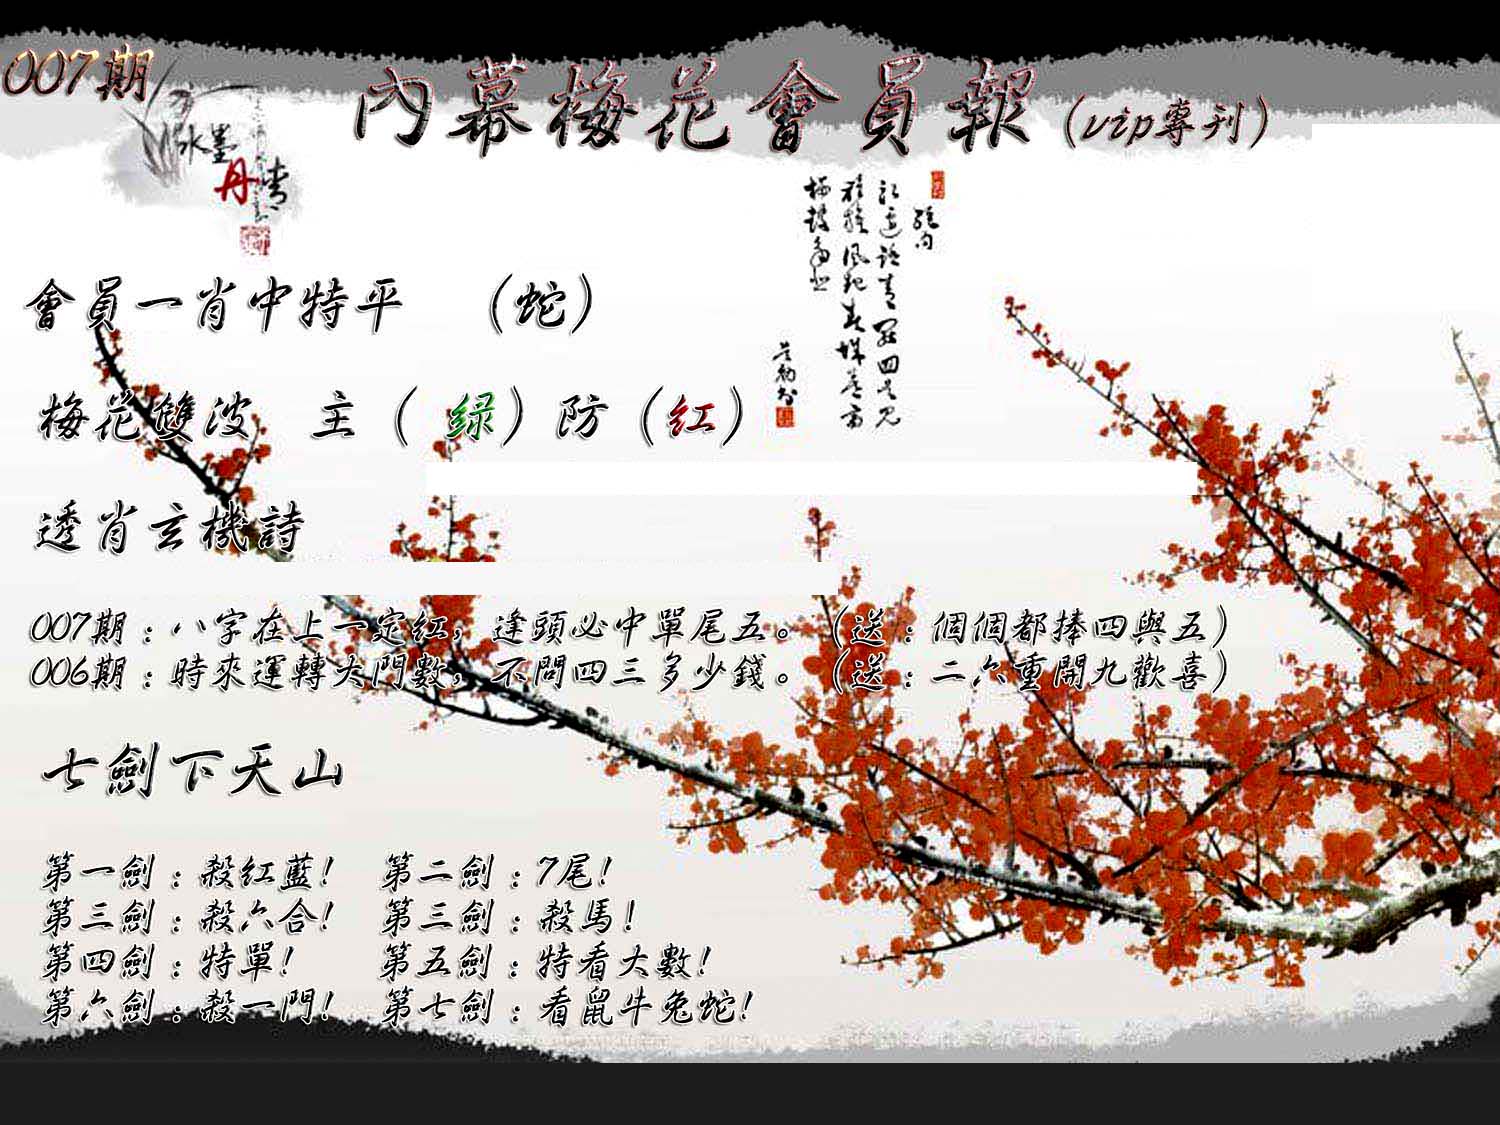 007期
內幕梅花會員報(vip專刊)
水墨
丹青
絕句
會員一肖中特平 (蛇)
梅花雙波 主(绿)防(红)
透肖玄機詩
007期:八字在上一定紅,逢頭必中單尾五。(送:個個都捧四與五)
006期:時來運轉大門數,不問四三多少錢。(送:二六重開九歡喜)
七劍下天山
第一劍:殺紅藍! 第二劍:7尾!
第三劍:殺六合! 第三劍:殺馬!
第四劍:特單! 第五劍:特看大數!
第六劍:殺一門! 第七劍:看鼠牛兔蛇!